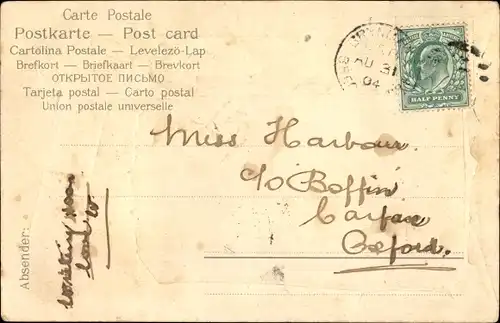 Carte Postale
Postkarte — Post card
Cartolina Postale — Levelező-Lap
Brefkort — Briefkaart — Brevkort
ОТКРЫТОЕ ПИСЬМО
Tarjeta postal — Carto postal
Union postale universelle
AU 31
04
HALF PENNY
Miss Harbour
c/o Boffin
Carfax
Oxford.
Absender: